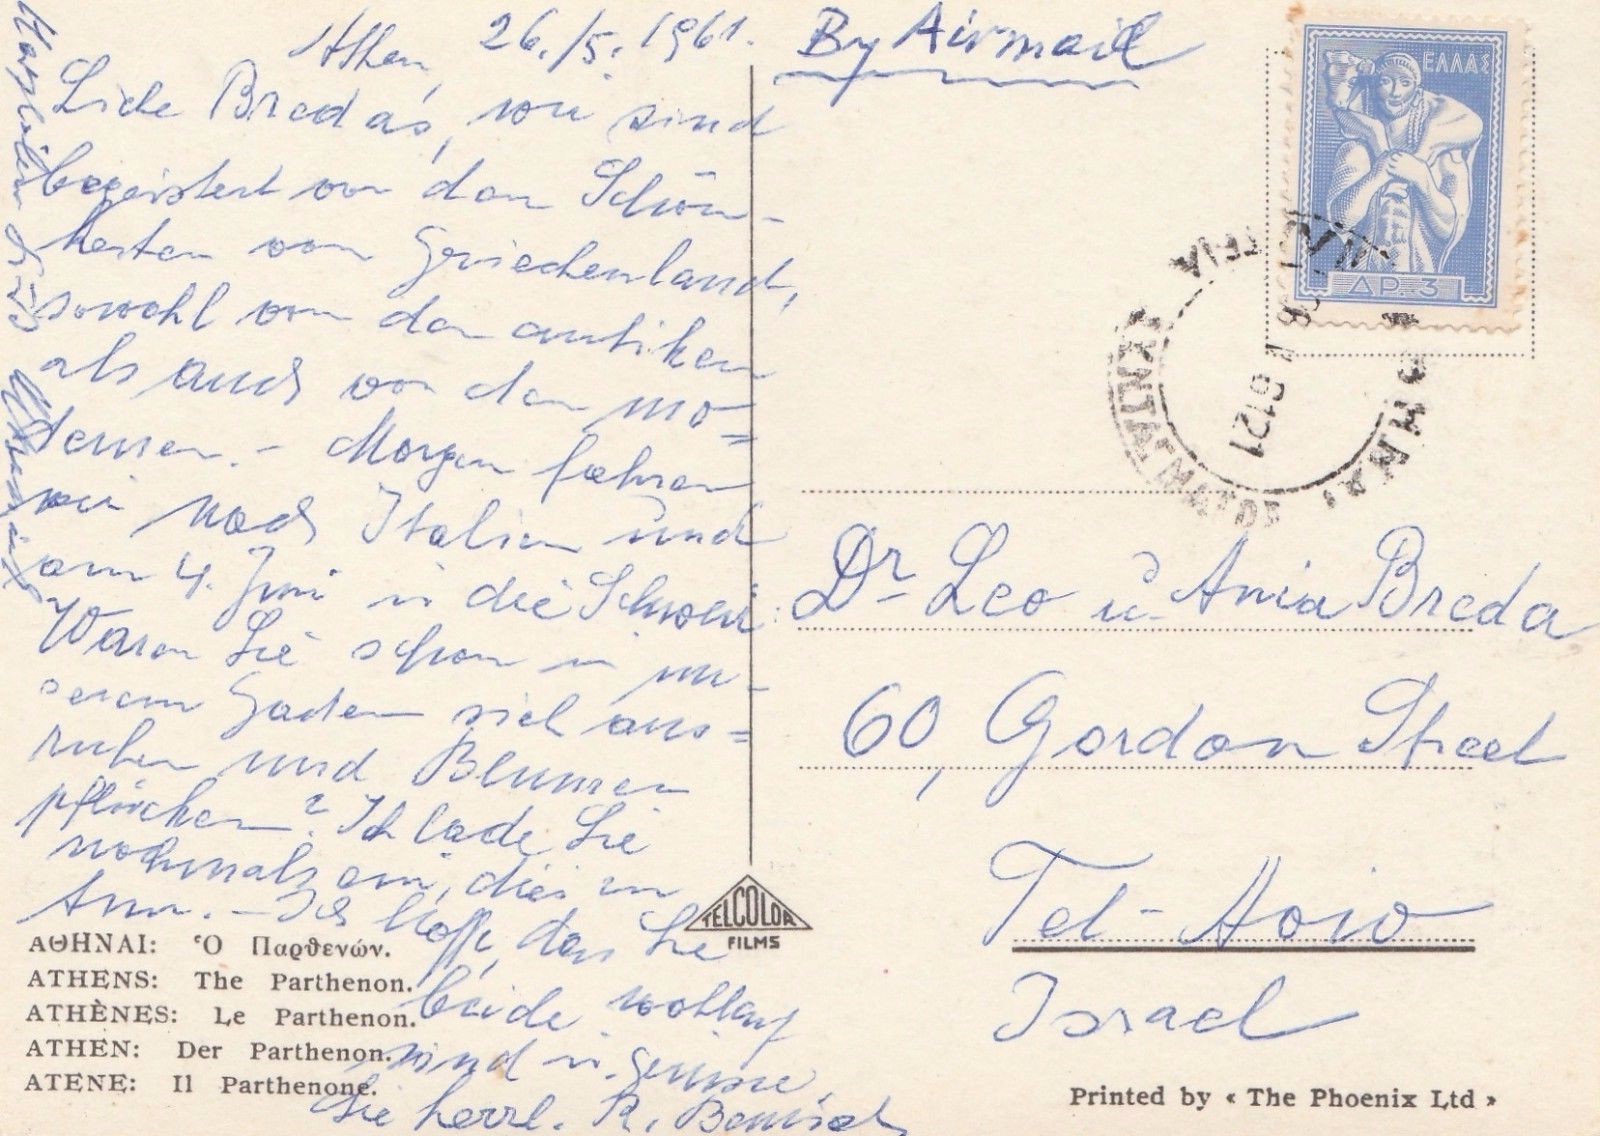 Athen, 26./5. 1961.
Liebe Bredas, wir sind
begeistert von den Schön-
heiten von Griechenland,
sowohl von den antiken
als auch von den mo=
dernen. - Morgen fahren
wir nach Italien und
am 4. Juni in die Schweiz.
Waren Sie schon in un-
serem Garten sich aus=
ruhen und Blumen
pflücken? Ich lade Sie
nochmals ein, dies zu
tun. - Ich hoffe, dass Sie
beide wohlauf
sind u. grüsse
Sie herzl. R.
Herzlichen Gruss
By Airmail
ΕΛΛΑΣ
ΔΡ. 3
ΣΥΝΤΑΓΜΑΤΟΣ
ΑΘΗΝΑΙ
Dr Leo u. Ania Breda
60, Gordon Street
Tel-Aviv
Israel
TELCOLOR
FILMS
ΑΘΗΝΑΙ: Ὁ Παρθενών.
ATHENS: The Parthenon.
ATHÈNES: Le Parthenon.
ATHEN: Der Parthenon.
ATENE: Il Parthenone.
Printed by « The Phoenix Ltd »